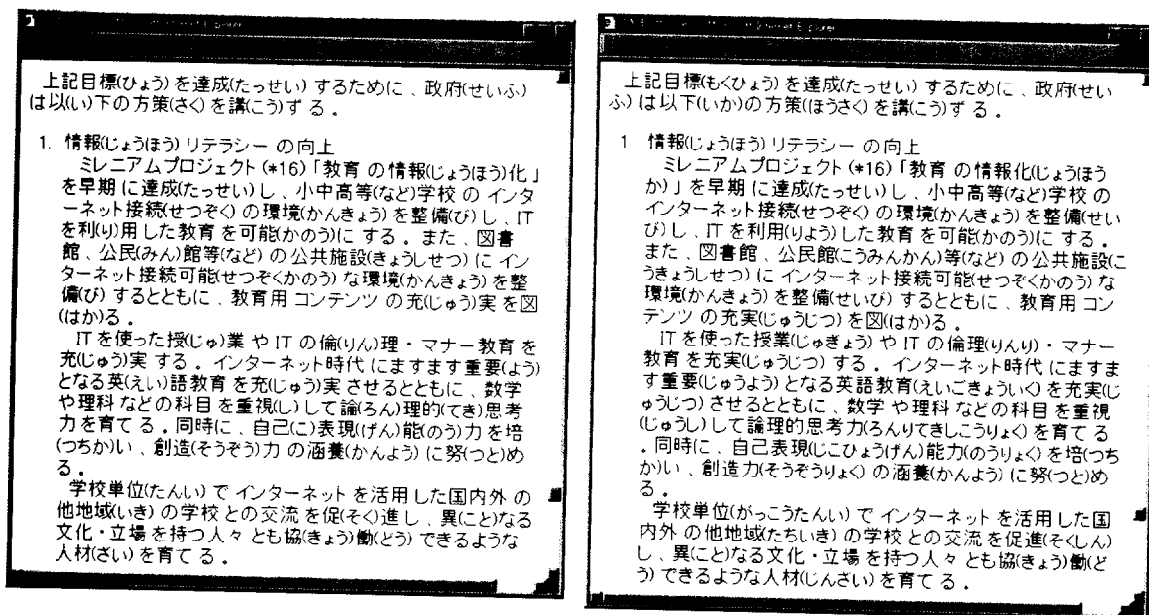 上記目標(ひょう) を達成(たっせい) するために 、政府(せいふ)
は以(い)下の方策(さく) を講(こう)ず る 。
1. 情報(じょうほう) リテラシー の向上
ミレニアムプロジェクト (*16) 「教育 の情報(じょうほう)化 」
を早期 に達成(たっせい) し 、小中高等(など)学校 の インタ
ーネット接続(せつぞく) の環境(かんきょう) を整備(び) し 、IT
を利(り)用 した教育 を可能(かのう)に する 。また 、図書
館 、公民(みん)館等(など) の公共施設(きょうしせつ) に イン
ターネット接続可能(せつぞくかのう) な環境(かんきょう) を整
備(び) するとともに 、教育用 コンテンツ の充(じゅう)実 を図
(はか)る 。
IT を使った授(じゅ)業 や IT の倫(りん)理・マナー教育 を
充(じゅう)実 する 。インターネット時代 にますます重要(よう)
となる英(えい)語教育 を充(じゅう)実 させるとともに 、数学
や理科 などの科目 を重視(し) して論(ろん)理的(てき)思考
力を育て る 。同時に 、自己(こ)表現(げん)能(のう)力 を培
(つちか)い 、創造(そうぞう)力 の涵養(かんよう) に努(つと)め
る 。
学校単位(たんい) で インターネット を活用 した国内外 の
他地域(いき) の学校 との交流 を促(そく)進 し 、異(こと)なる
文化・立場 を持つ人々 とも協(きょう)働(どう) できるような
人材(ざい) を育て る 。
上記目標(もくひょう) を達成(たっせい) するために 、政府(せい
ふ) は以下(いか)の方策(ほうさく) を講(こう)ず る 。
1 情報(じょうほう) リテラシー の向上
ミレニアムプロジェクト (*16) 「教育 の情報化(じょうほう
か) 」 を早期 に達成(たっせい) し 、小中高等(など)学校 の
インターネット接続(せつぞく) の環境(かんきょう) を整備(せい
び) し 、IT を利用(りよう) した教育 を可能(かのう)に する 。
また 、図書館 、公民館(こうみんかん)等(など) の公共施設(こ
うきょうしせつ) に インターネット接続可能(せつぞくかのう) な
環境(かんきょう) を整備(せいび) するとともに 、教育用 コン
テンツ の充実(じゅうじつ) を図(はか)る 。
IT を使った授業(じゅぎょう) や IT の倫理(りんり)・マナー
教育 を充実(じゅうじつ) する 。インターネット時代 にますま
す重要(じゅうよう) となる英語教育(えいごきょういく) を充実(じ
ゅうじつ) させるとともに 、数学 や理科 などの科目 を重視
(じゅうし) して論理的思考力(ろんりてきしこうりょく) を育て る
。同時に 、自己表現(じこひょうげん)能力(のうりょく) を培(つち
か)い 、創造力(そうぞうりょく) の涵養(かんよう) に努(つと)め
る 。
学校単位(がっこうたんい) で インターネット を活用 した国
内外 の他地域(たちいき) の学校 との交流 を促進(そくしん)
し 、異(こと)なる文化・立場 を持つ人々 とも協(きょう)働(ど
う) できるような人材(じんざい) を育て る 。